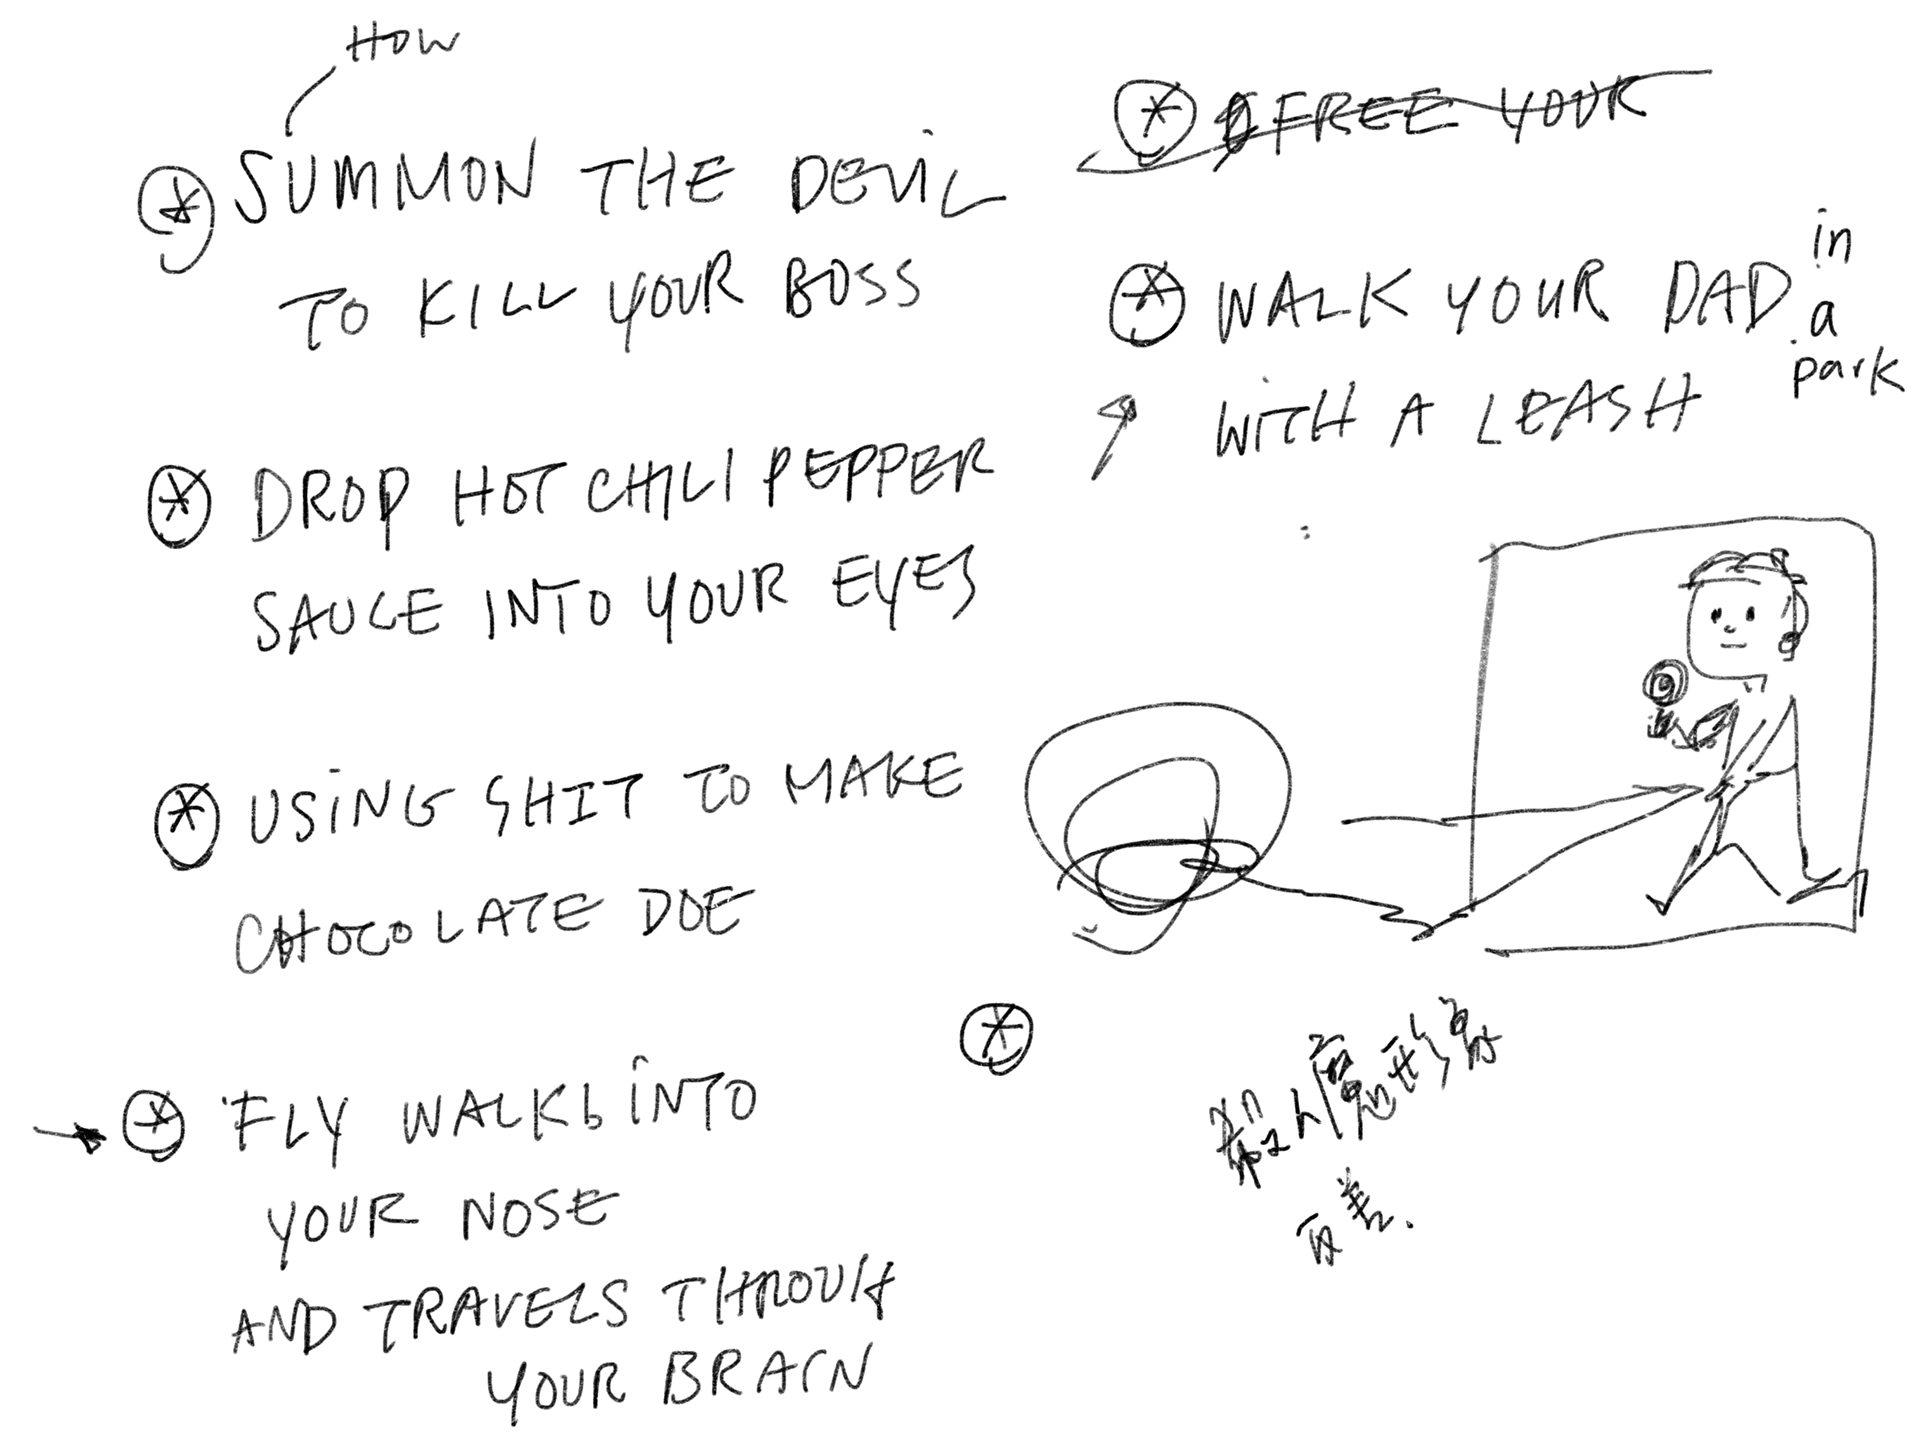 HOW
SUMMON THE DEVIL
TO KILL YOUR BOSS
DROP HOT CHILI PEPPER
SAUCE INTO YOUR EYES
USING SHIT TO MAKE
CHOCOLATE DOE
FLY WALKS INTO
YOUR NOSE
AND TRAVELS THROUH
YOUR BRAIN
FREE YOUR
WALK YOUR DAD in a park
WITH A LEASH
形象
反差.